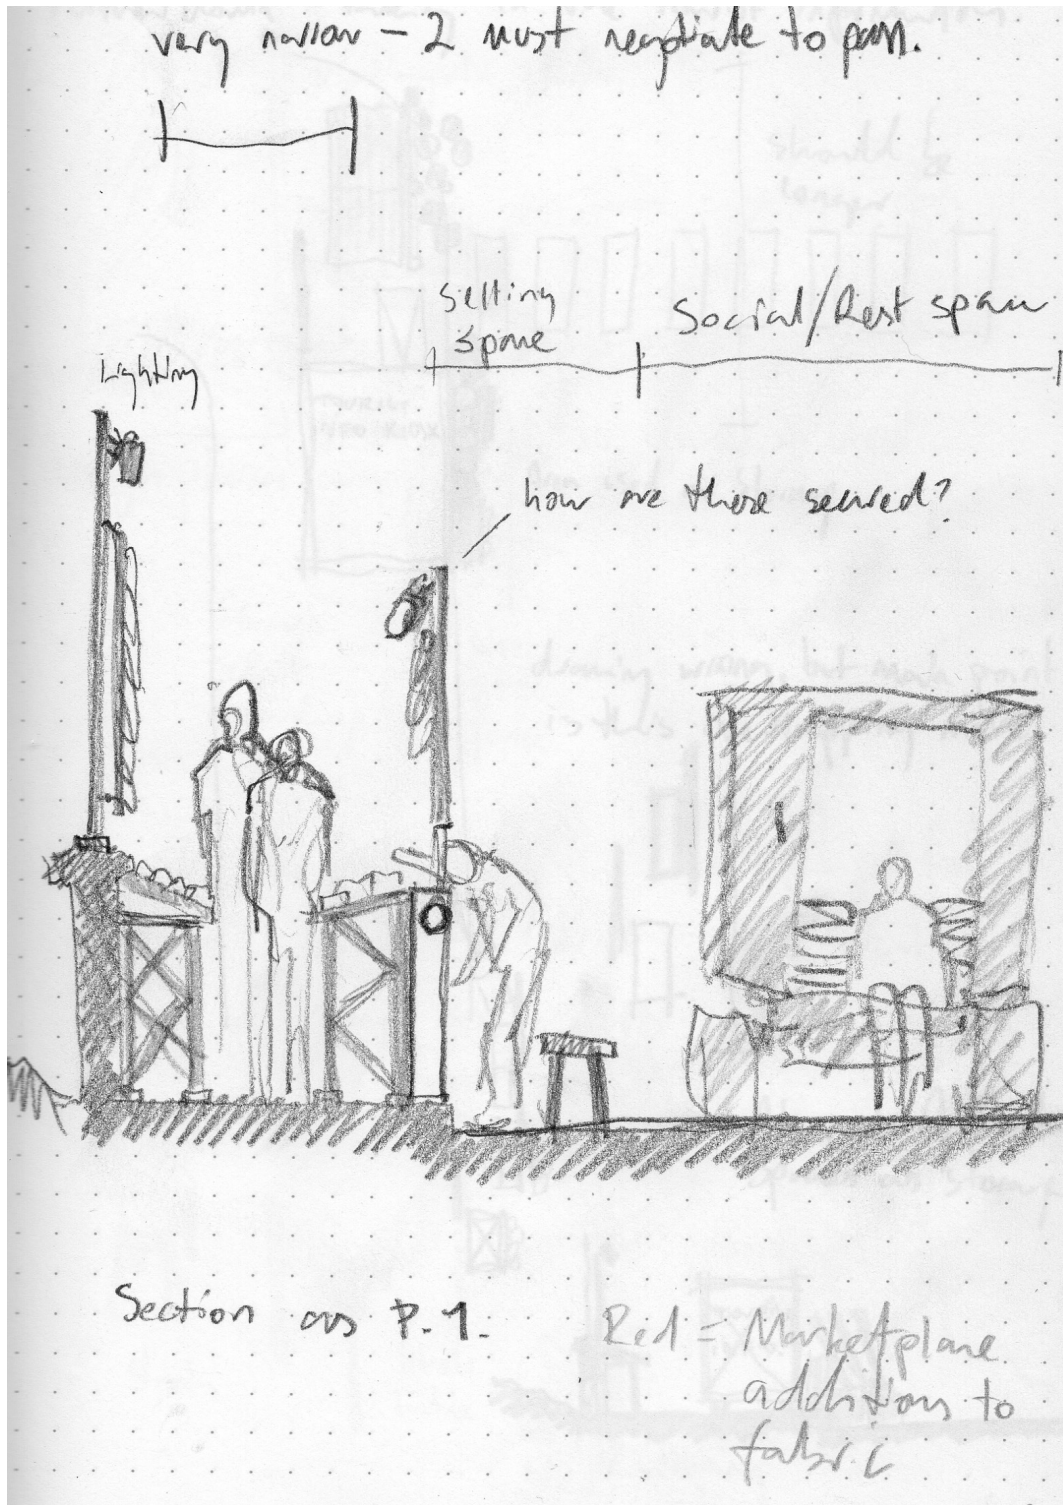 very narrow – 2 must negotiate to pass.
Selling
space
Social/Rest space
Lighting
how are these secured?
Section as P.1.
Red = Marketplace
additions to
fabric